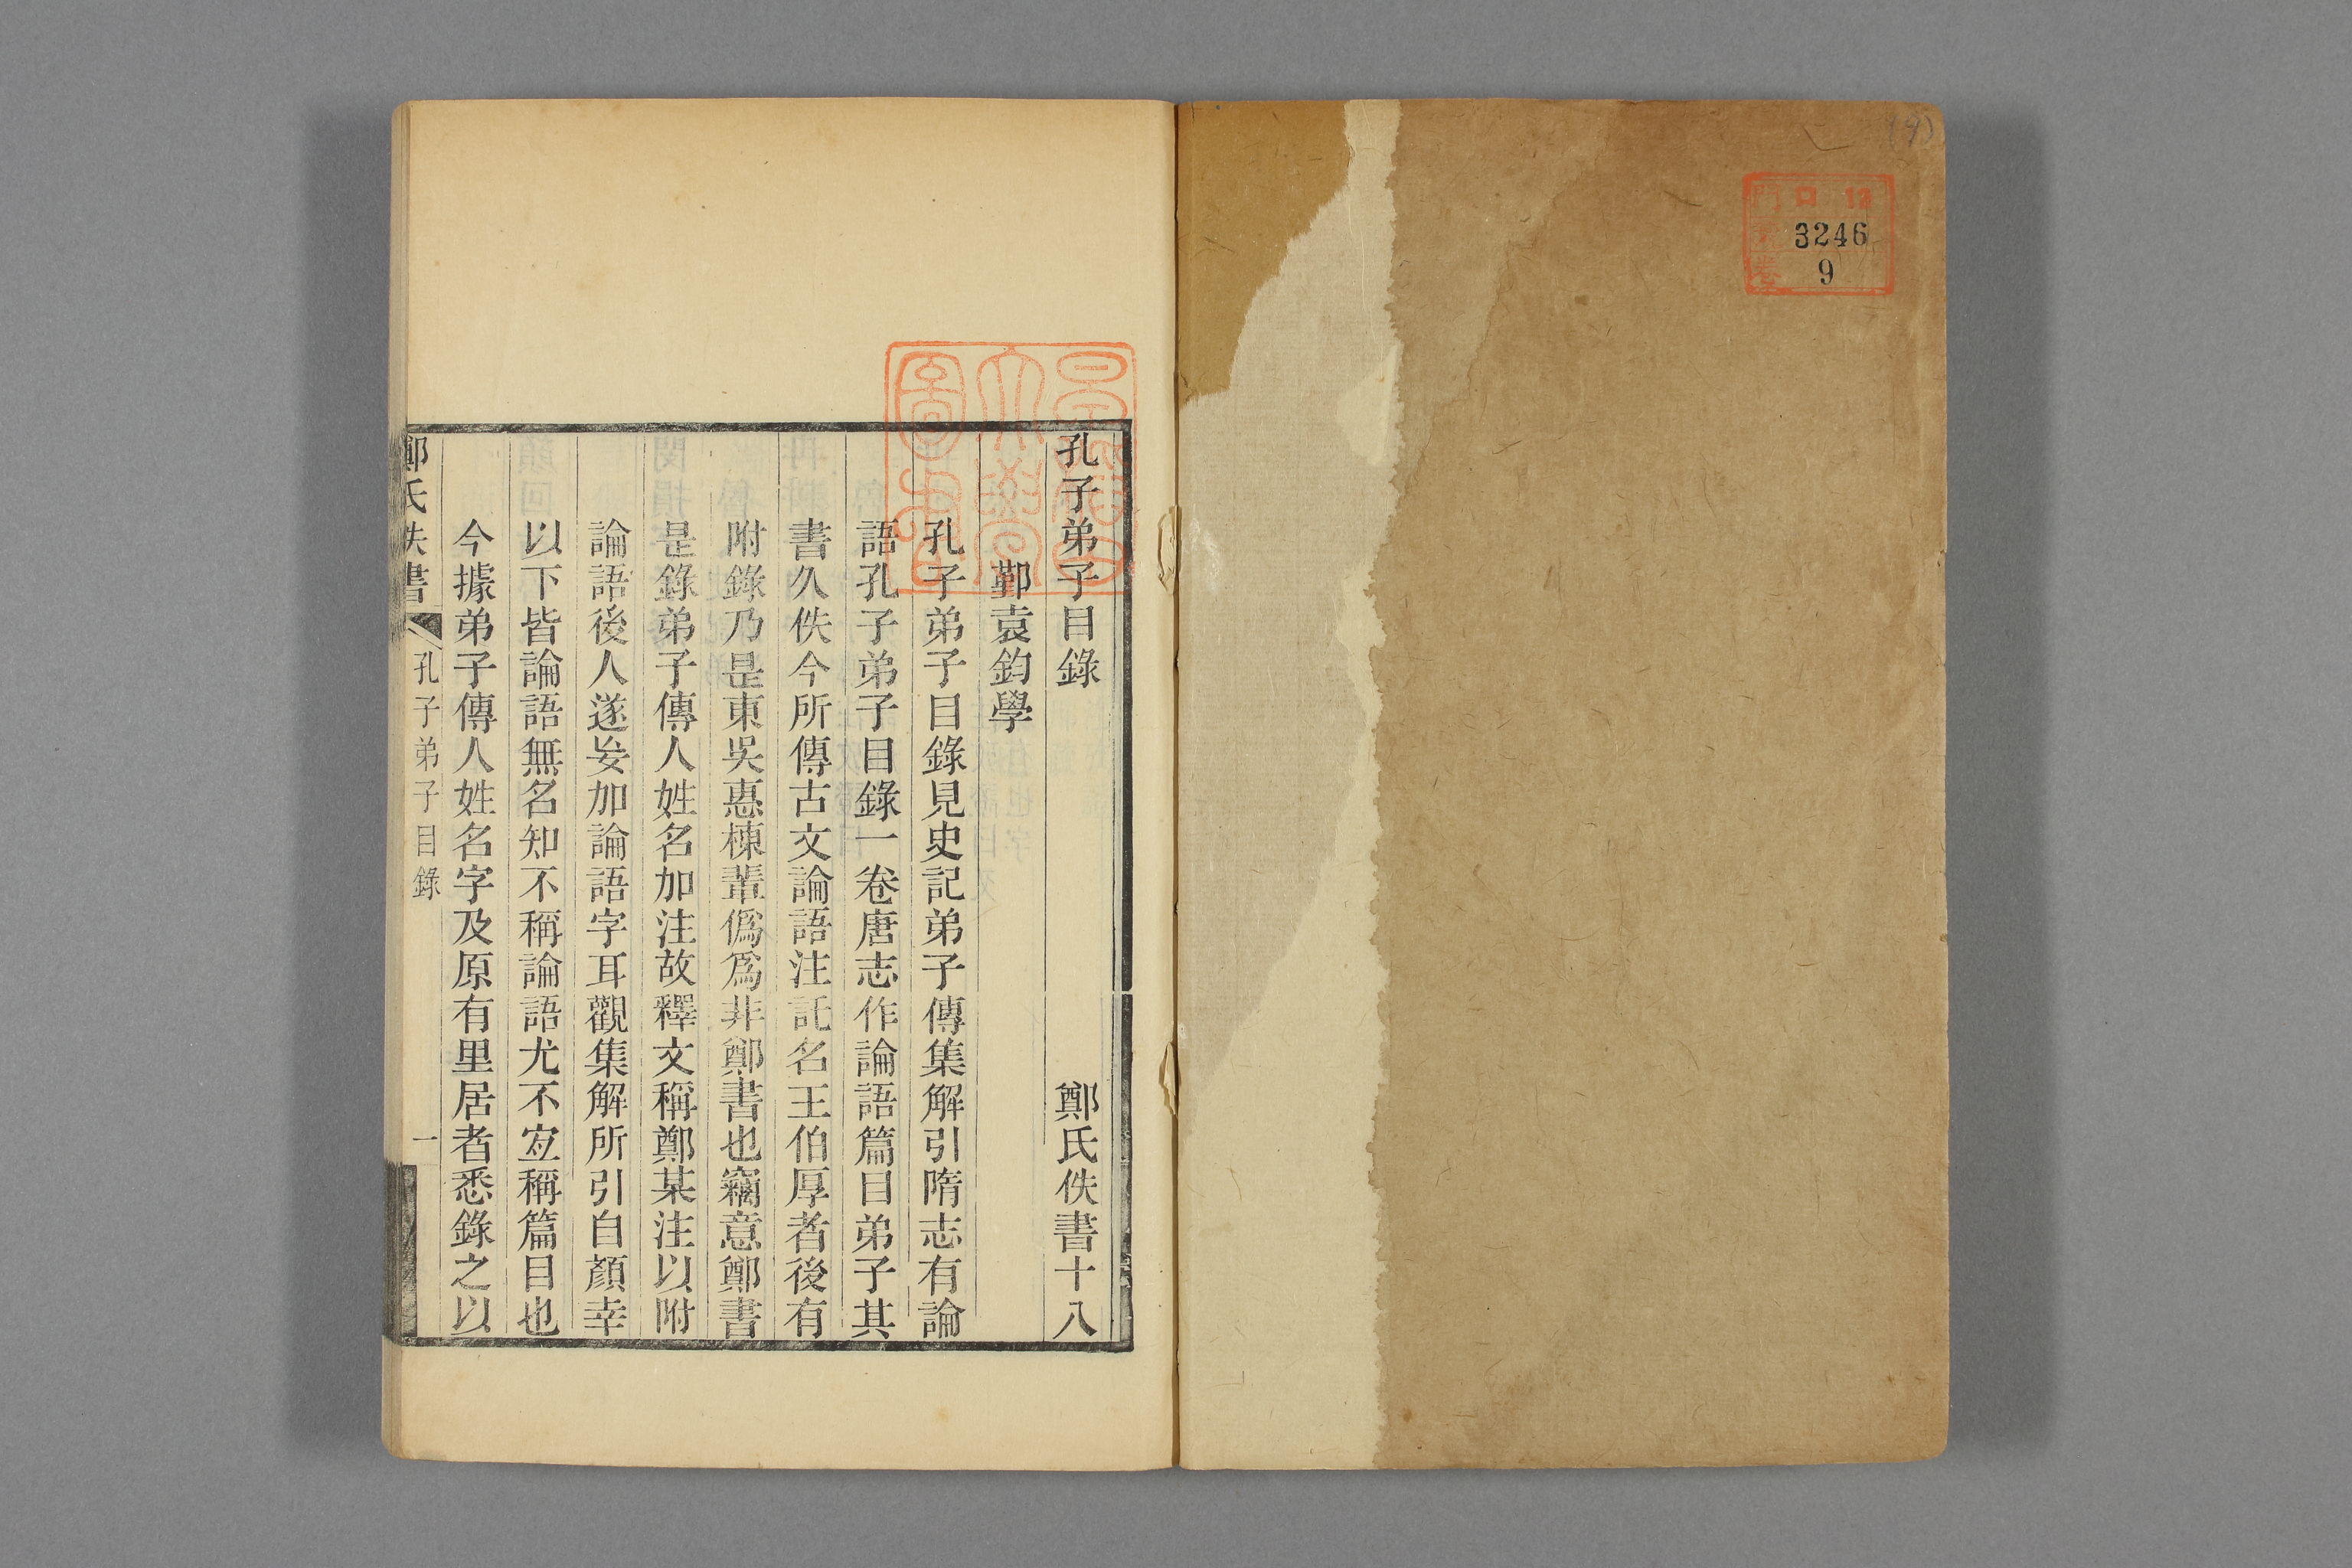 (9)
門 ロ 13
3246
卷 9
孔子弟子目錄 鄭氏佚書十八
鄞袁鈞學
孔子弟子目錄見史記弟子傳集解引隋志有論
語孔子弟子目錄一卷唐志作論語篇目弟子其
書久佚今所傳古文論語注託名王伯厚者後有
附錄乃是東吳惠棟輩僞爲非鄭書也竊意鄭書
是錄弟子傳人姓名加注故釋文稱鄭某注以附
論語後人遂妄加論語字耳觀集解所引自顏幸
以下皆論語無名知不稱論語尤不宐稱篇目也
今據弟子傳人姓名字及原有里居者悉錄之以
鄭氏佚書 孔子弟子目錄 一